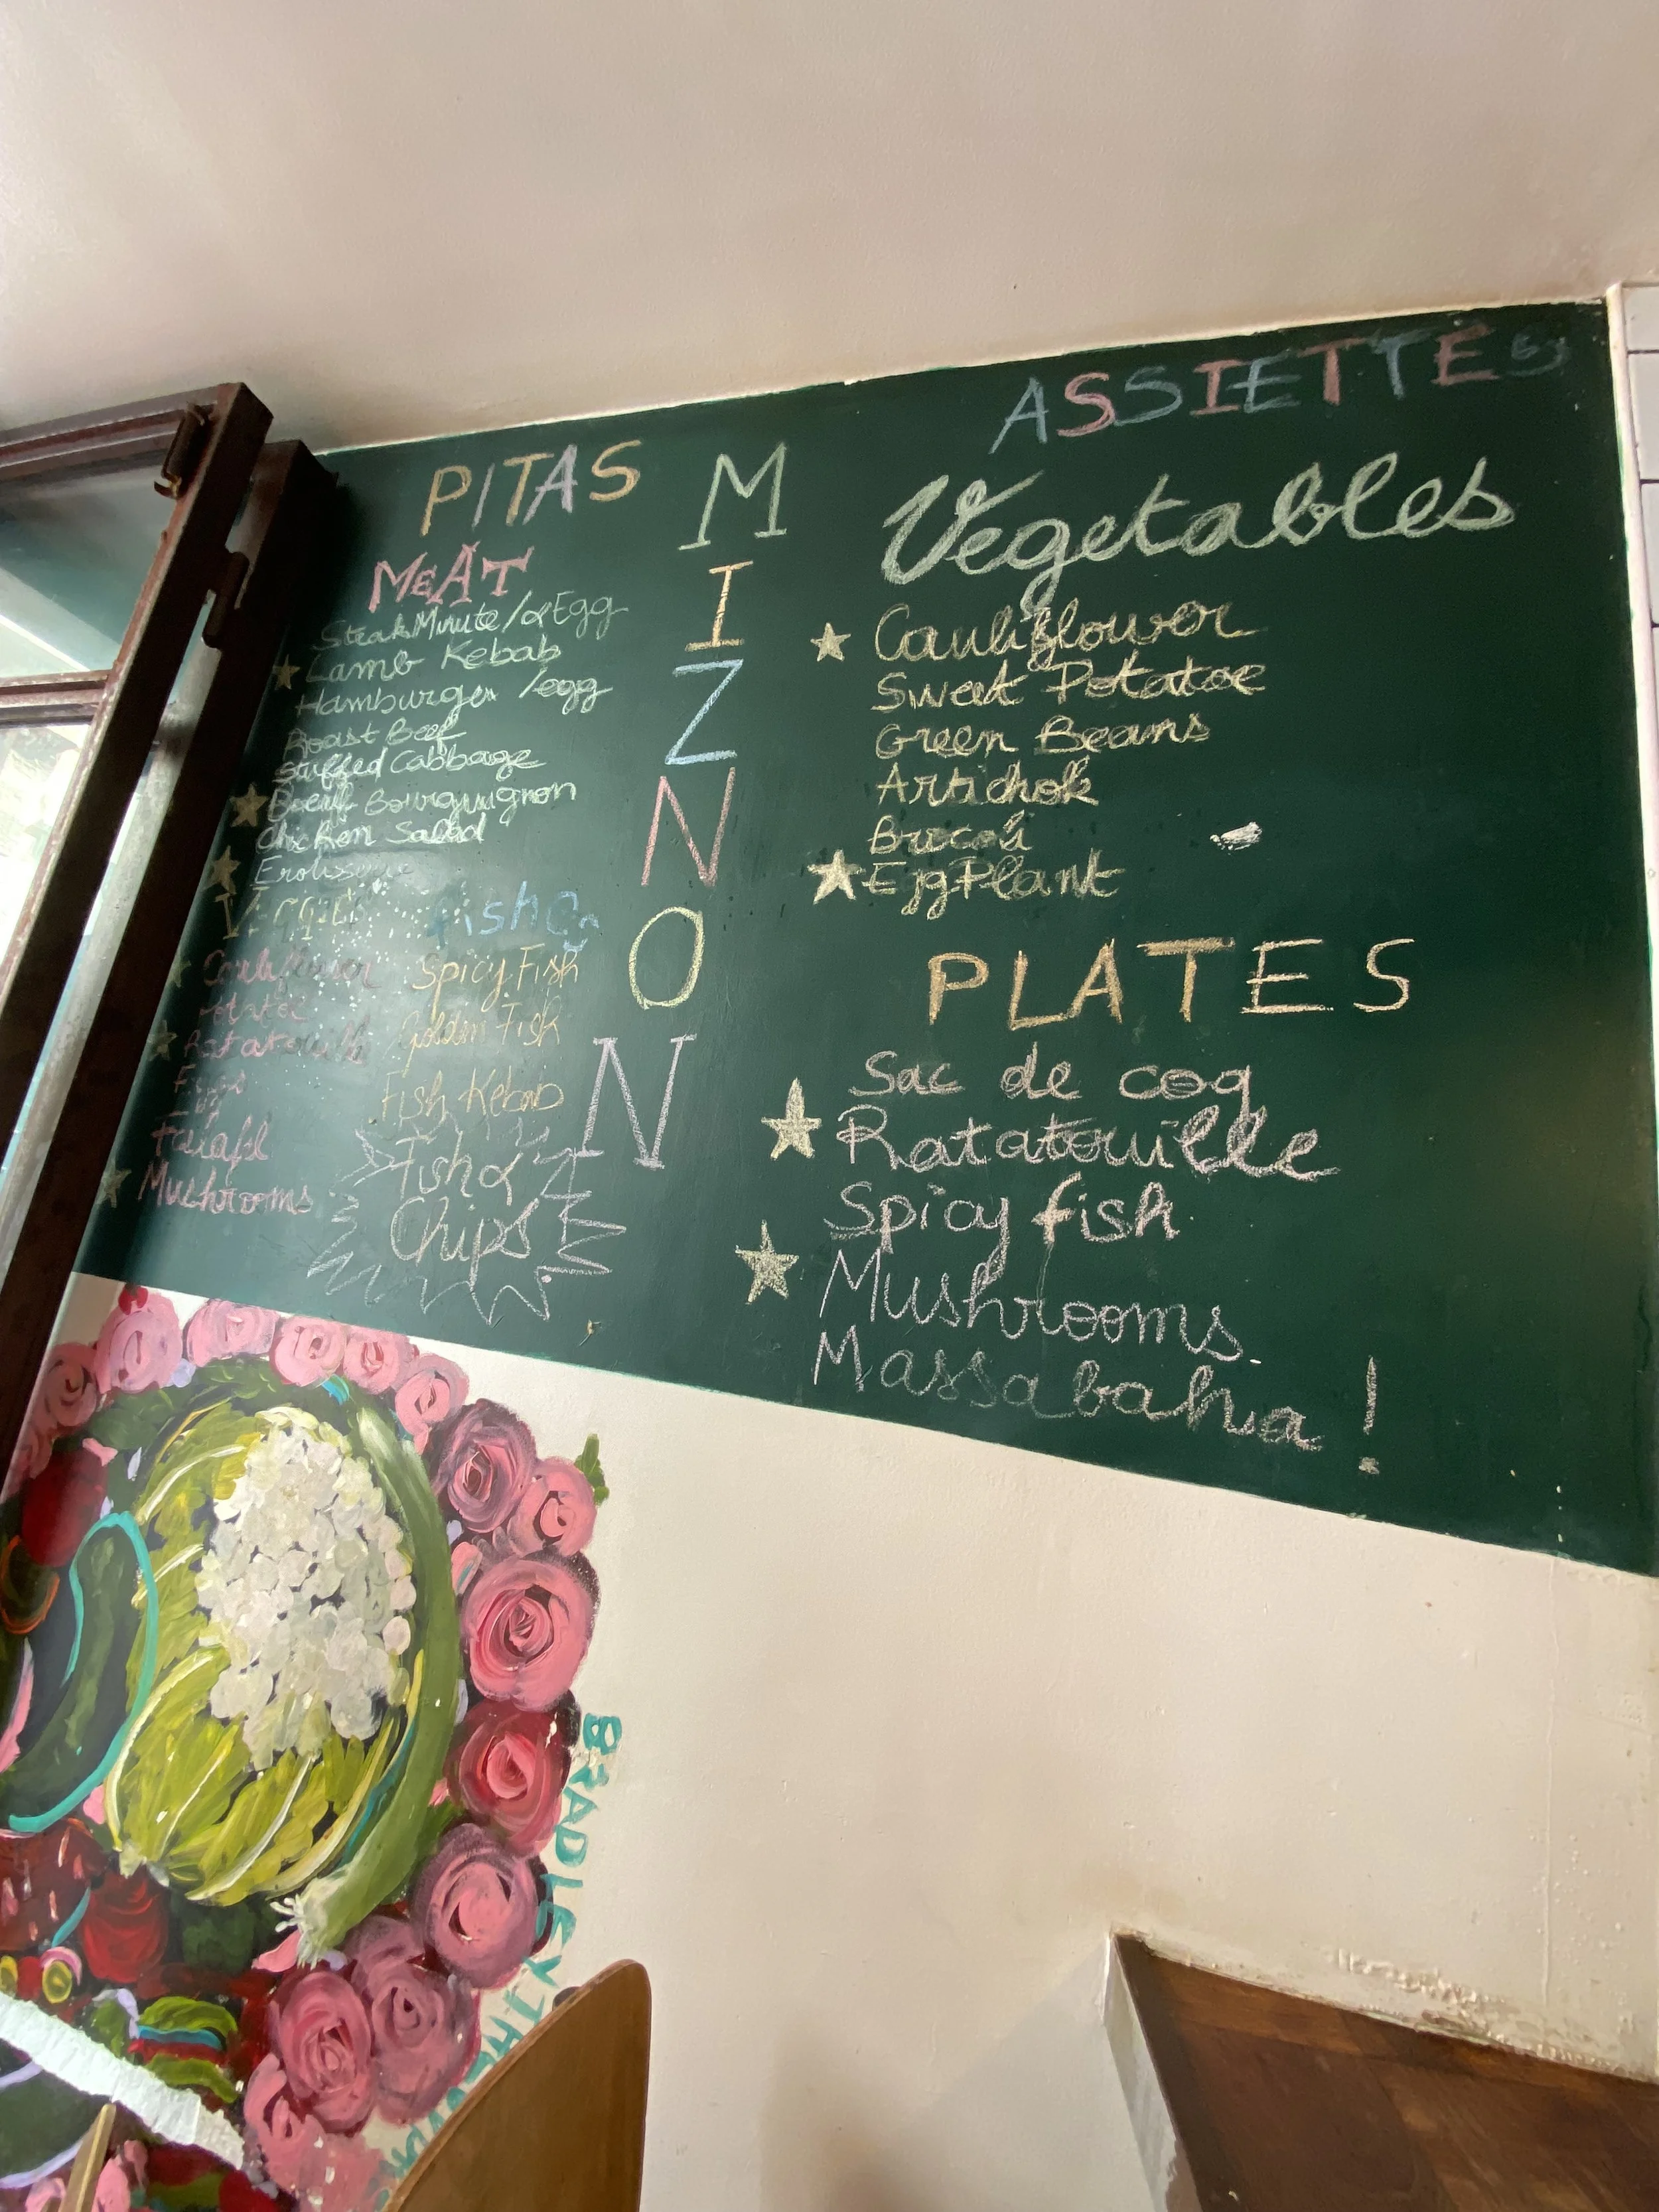 PITAS
MEAT
Steak Minute / & Egg
Lamb Kebab
Hamburger /egg
Roast Beef
Stuffed Cabbage
Boeuf Bourguignon
Chicken Salad
VEGGIE
Cauliflower
Potatoe
Ratatouille
Eggs
Falafel
Mushrooms
Spicy Fish
Golden Fish
Fish Kebab
Fish &
Chips
MIZNON
ASSIETTES
Vegetables
Cauliflower
Sweet Potatoe
Green Beans
Artichok
Brocoli
EggPlant
PLATES
Sac de coq
Ratatouille
Spicy fish
Mushrooms
Massabaha!
BRADLEY